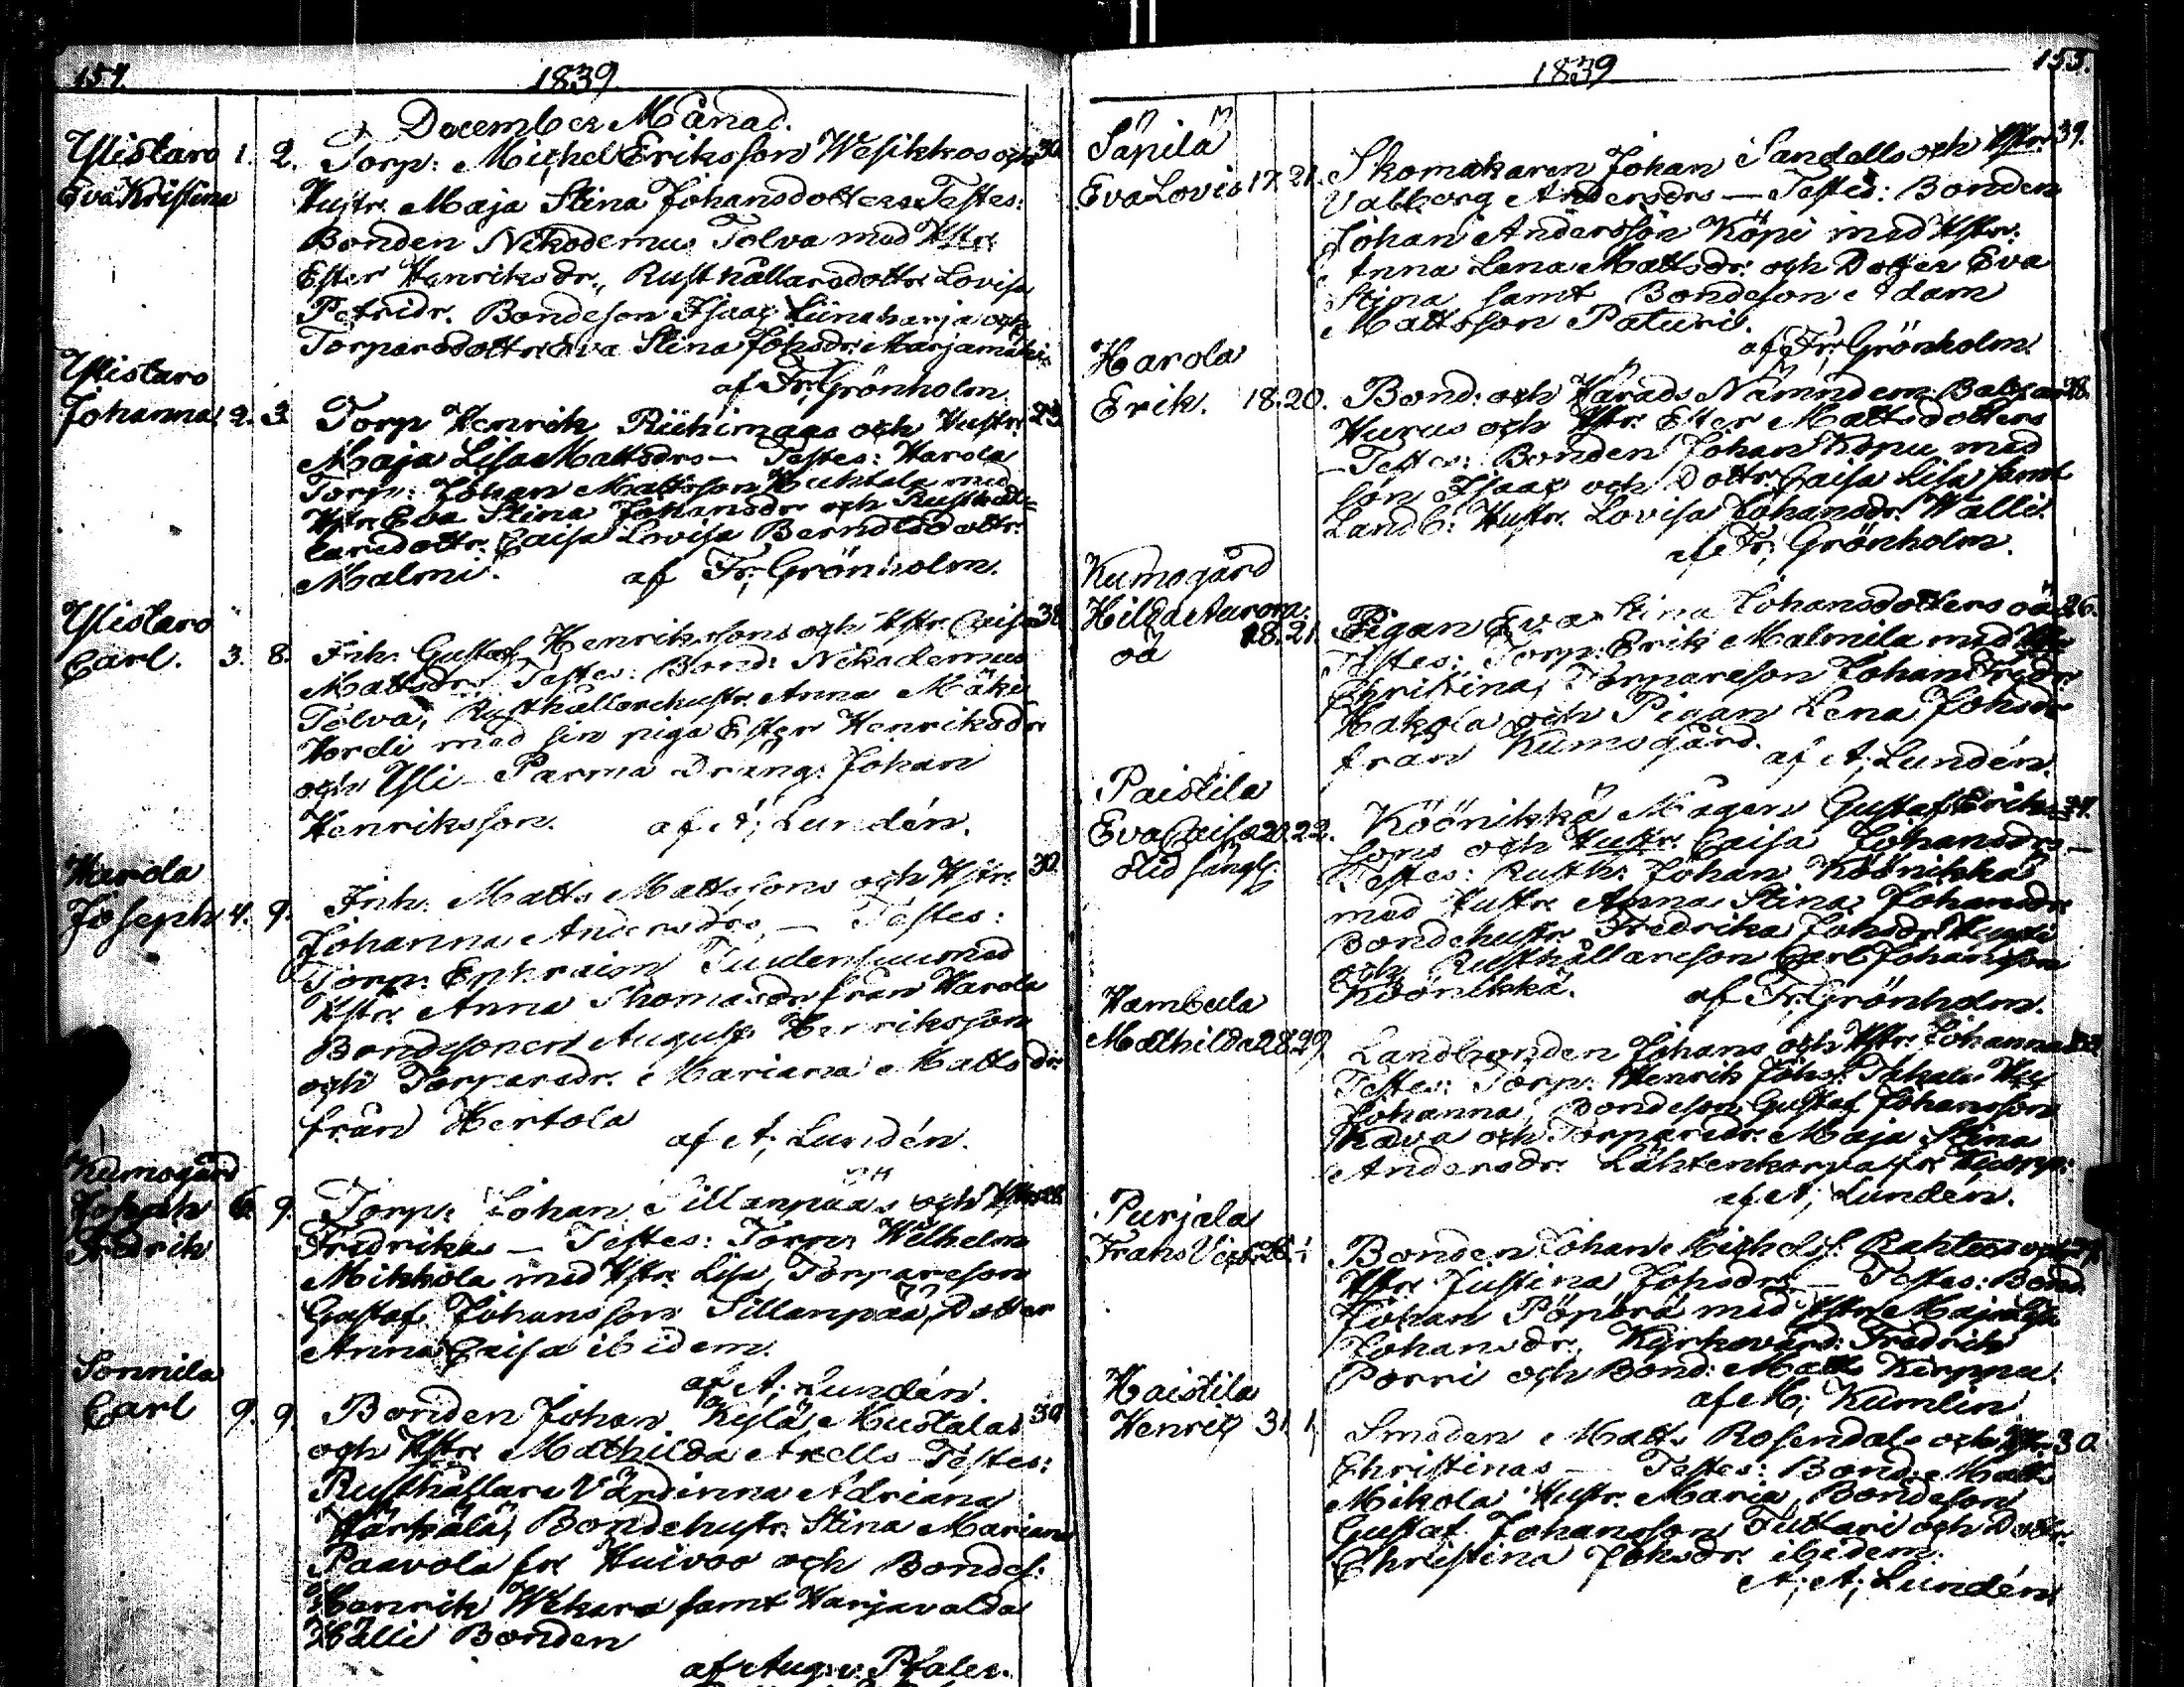 154.
1839.
December Månad.
Ylistaro 1. 2. Torp: Michel Eriksson Wesikkos och 30
Eva Kristina Hustr. Maja Stina Johansdotters Testes:
Bonden Nikodemus Tolva med Hstr.
Ester Henriksdr., Rusthållaredottr. Lovisa
Petridr. Bondeson Isaac Liinaharja och
Torparedottr. Eva Stina Johsdr. Marjamäki
af Fr; Grönholm
Ylistaro
Johanna 2. 3. Torp Henrik Riihimaas och Hustr. 23
Maja Lisa Mattsdrs — Testes: Harola
Torp: Johan Mattsson Huhtala med
Hstr. Eva Stina Johansdr och Rusthål-
laredottr. Caisa Lovisa Berndtsdottr.
Malmi. af Fr; Grönholm.
Ylistaro
Carl. 3. 8. Inh. Gustaf Henrikssons och Hstr. Caisa 38
Mattsdrs Testes: Bond: Nikodemus
Tolva, Rusthållarehustr. Anna Mäki
Hordi med sin piga Ester Henriksdr
och Yli-Parma dräng: Johan
Henriksson. af A; Lundén.
Harola
Joseph 4. 9. Inh. Matts Mattssons och Hstr. 30
Johanna Andersdrs, — Testes:
Torp: Ephraim med
Hstr. Anna Thomasdr från Harola
Bondesonen August Henriksson
och Torparedr. Mariana Mattsdr.
från Hertola
af A; Lundén.
Kumogård
Johan 6. 9. Torp: Johan Sillanpääs och Hstr 28
Fredrik Fredrikas — Testes: Torp: Wilhelm
Mikkola med Hstr. Lisa, Torpareson
Gustaf Johansson Sillanpää, Dotter
Anna Caisa ibidem.
af A; Lundén.
Sonnila
Carl 9. 9. Bonden Johan Kylä-Mustalas 30
och Hstr. Mathilda Axells Testes:
Rusthållare Värdinna Adriana
Härkälä, Bondehustr. Stina Mariana
Paavola fr. Huivoo och Bondes:
Henrik Wekara samt Harjavalda
Hälli Bonden
af Aug: v. Pfaler.
1839
155.
Säpilä
Eva Lovis 17. 21. Skomakaren Johan Sandells och Hstr. 39.
Valborg Andersdrs — Testes: Bonden
Johan Andersson Köpi med Hstr.
Anna Lena Mattsdr. och Dotter Eva
Stina samt Bondeson Adam
Mattsson Paturi.
af Fr; Grönholm.
Harola
Erik. 18. 20. Bond: och Härads Nämndem: Baltzar 38.
Hurus och Hstr. Ester Mattsdotters
— Testes: Bonden Johan Knpu med
son Isaac och Dottr. Caisa Lisa samt
Landb: Hustr. Lovisa Johansdr. Walli.
af Fr; Grönholm.
Kumogård
Hilda Aurora 18. 21. Pigan Eva Stina Johansdotters oä 26.
oä Testes: Torp: Erik Malmila med Hstr
Christina, Torpareson Johan Fredr.
Hakola och Pigan Lena Johsdr
från Kumogård.
af A; Lundén.
Paistila
Eva Caisa 20. 22. Köönikkä Mågen Gustaf Eriks- 24.
sons och Hustr. Caisa Johansdrs —
Testes: Rusth: Johan Köönikkä
med Hustr. Anna Stina Johansdr
Bondehustr. Fredrika Johsdr.
och Rusthållareson Carl Johansson
Köönikkä. af Fr; Grönholm.
Hambula
Mathilda 28. 29. Landbonden Johans och Hstr. Johannas
Testes: Torp: Henrik Johs:
Johanna, Bondeson Gustaf Johansson
Kava och Torparedr. Maja Stina
Andersdr. Lähtenkorva fr.
af A; Lundén.
Purjala
Frans Vict. Bonden Johan Michelss:
Hstr. Justina Johsdrs — Testes: Bond.
Johan Pöpörä med Hstr. Maja Lisa
Johansdr, Kyrkovärd: Fredrik
Porri och Bond: Matts Kirppu.
af M; Kumlin
Haistila
Henric 31. 1. Smeden Matts Rosendals och Hstr. 30.
Christinas — Testes: Bond: Matts
Mikola Hustr. Maria, Bondeson
Gustaf Johansson Tuttari och Dottr.
Christina Johsdr. ibidem.
A; A; Lundén